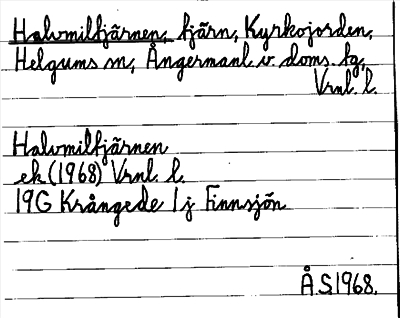 Halvmiltjärnen, tjärn, Kyrkojorden,
Helgums sn, Ångermanl. v. doms. tg,
Vrnl. l.
Halvmiltjärnen
ek (1968) Vrnl. l.
19G Krångede 1j Finnsjön
Å.S.1968.